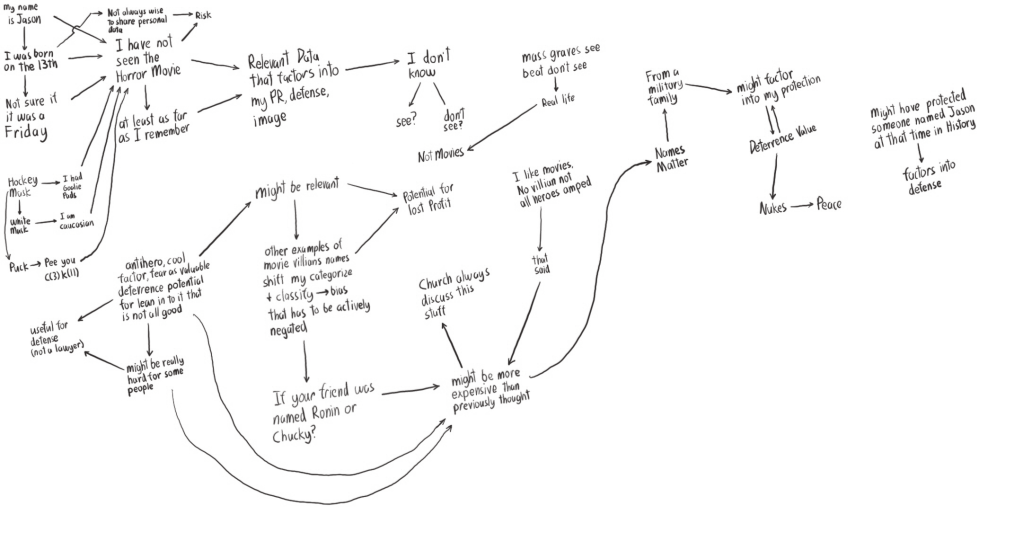 my name
is Jason
Not always wise
to share personal
data
Risk
I was born
on the 13th
I have not
seen the
Horror Movie
Not sure if
it was a
Friday
at least as far
as I remember
Relevant Data
that factors into
my PR, defense,
image
I don't
know
see?
don't
see?
mass graves see
beat don't see
Real life
Not Movies
From a
military
family
might factor
into my protection
Names
Matter
Deterrence Value
Nukes
Peace
might have protected
someone named Jason
at that time in History
factors into
defense
Hockey
Mask
I had
Goalie
Pads
White
Mask
I am
caucasian
Puck
Pee you
C(3)K(11)
antihero, cool
factor, fear as valuable
deterrence potential
for lean in to it that
is not all good
useful for
defense
(not a lawyer)
might be really
hard for some
people
might be relevant
Potential for
lost Profit
other examples of
movie villians names
shift my categorize
+ classify → bias
that has to be actively
negated
If your friend was
named Ronin or
Chucky?
I like movies.
No villian not
all heroes amped
that
said
Church always
discuss this
stuff
might be more
expensive than
previously thought